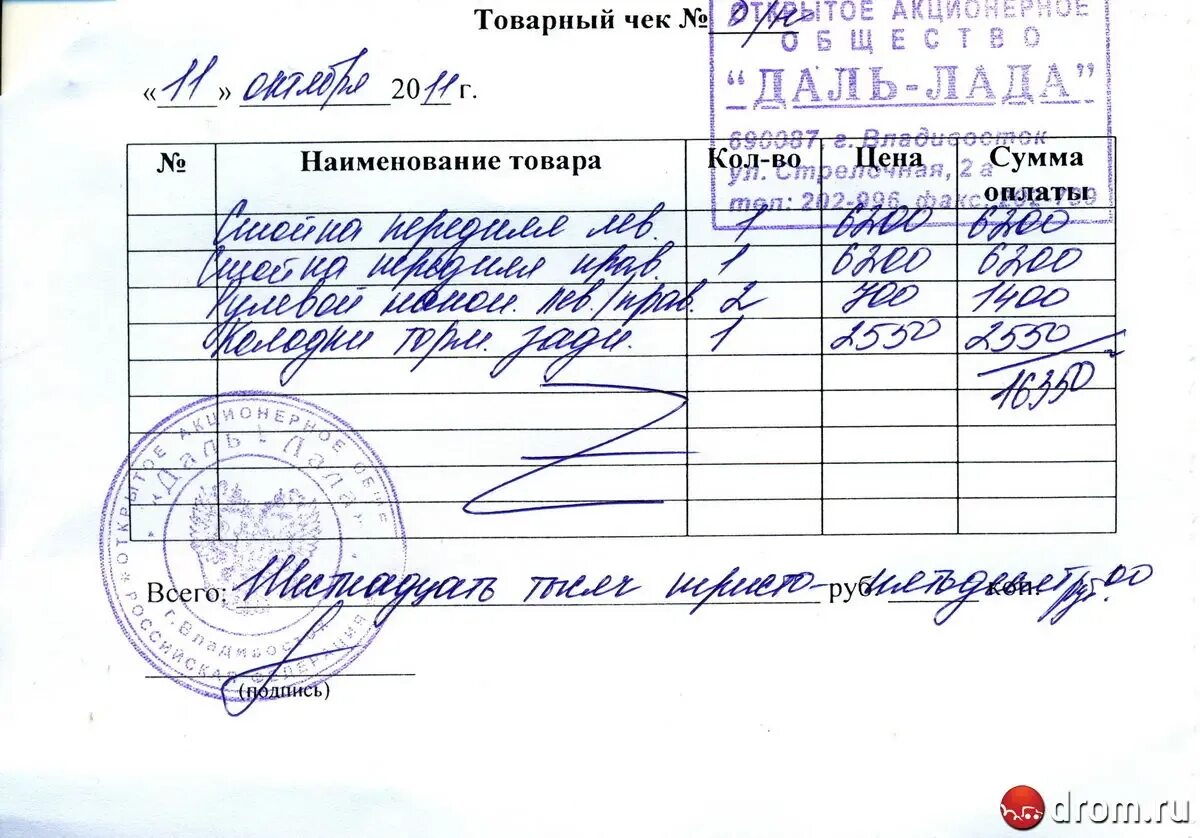 Товарный чек № б/н
ОТКРЫТОЕ АКЦИОНЕРНОЕ
ОБЩЕСТВО
"ДАЛЬ-ЛАДА"
690087, г. Владивосток
ул. Стрелочная, 2 а
тел: 202-996, факс:
«11» октября 2011 г.
№ Наименование товара Кол-во Цена Сумма оплаты
Стойка передняя лев. 1 6200 6200
Стойка передняя прав. 1 6200 6200
Рулевой након. лев./прав. 2 700 1400
Колодки торм. задн. 1 2550 2550
16350
ОТКРЫТОЕ АКЦИОНЕРНОЕ ОБЩЕ
"Даль-Лада"
г. Владивосток
РОССИЙСКАЯ ФЕДЕРАЦИЯ
Всего: Шестнадцать тысяч триста руб. пятьдесят руб. 00 коп.
(подпись)
drom.ru